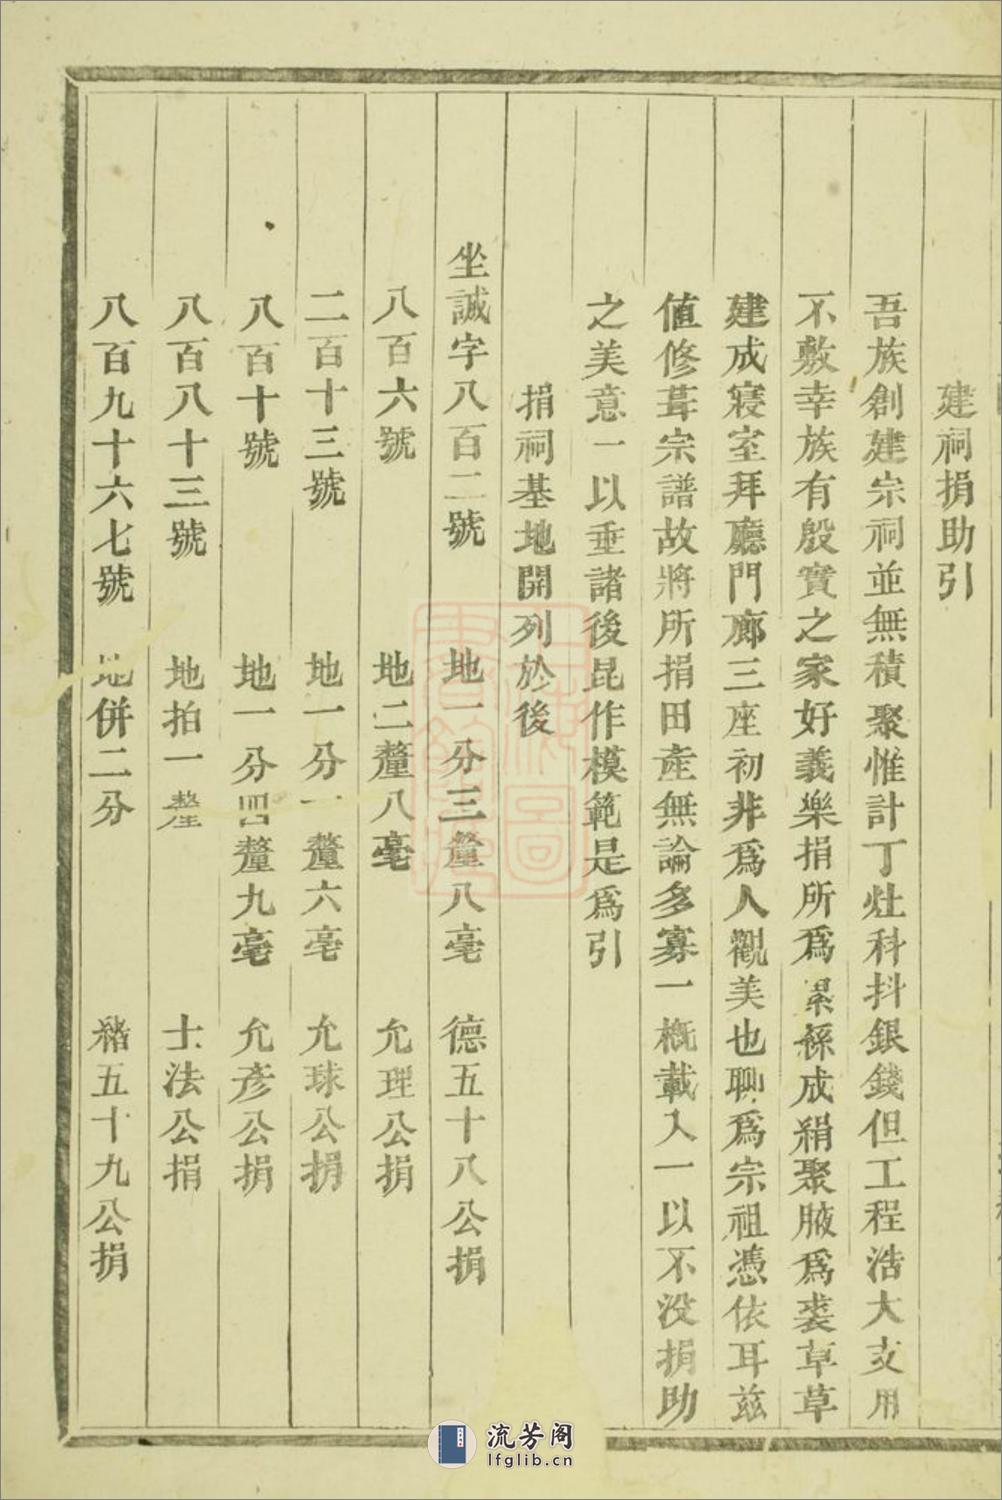 建祠捐助引
吾族創建宗祠並無積聚惟計丁灶科抖銀錢但工程浩大支用
不敷幸族有殷實之家好義樂捐所爲累絲成絹聚腋爲裘草草
建成寢室拜廳門廊三座初非爲人觀美也聊爲宗祖憑依耳茲
值修葺宗譜故將所捐田產無論多寡一概載入一以不没捐助
之美意一以垂諸後昆作模範是爲引
捐祠基地開列於後
坐誠字八百二號 地一分三釐八毫 德五十八公捐
八百六號 地二釐八毫 允理公捐
二百十三號 地一分一釐六毫 允球公捐
八百十號 地一分四釐九毫 允彥公捐
八百八十三號 地拍一釐 士法公捐
八百九十六七號 地併二分 五十九公捐
流芳阁
lfglib.cn